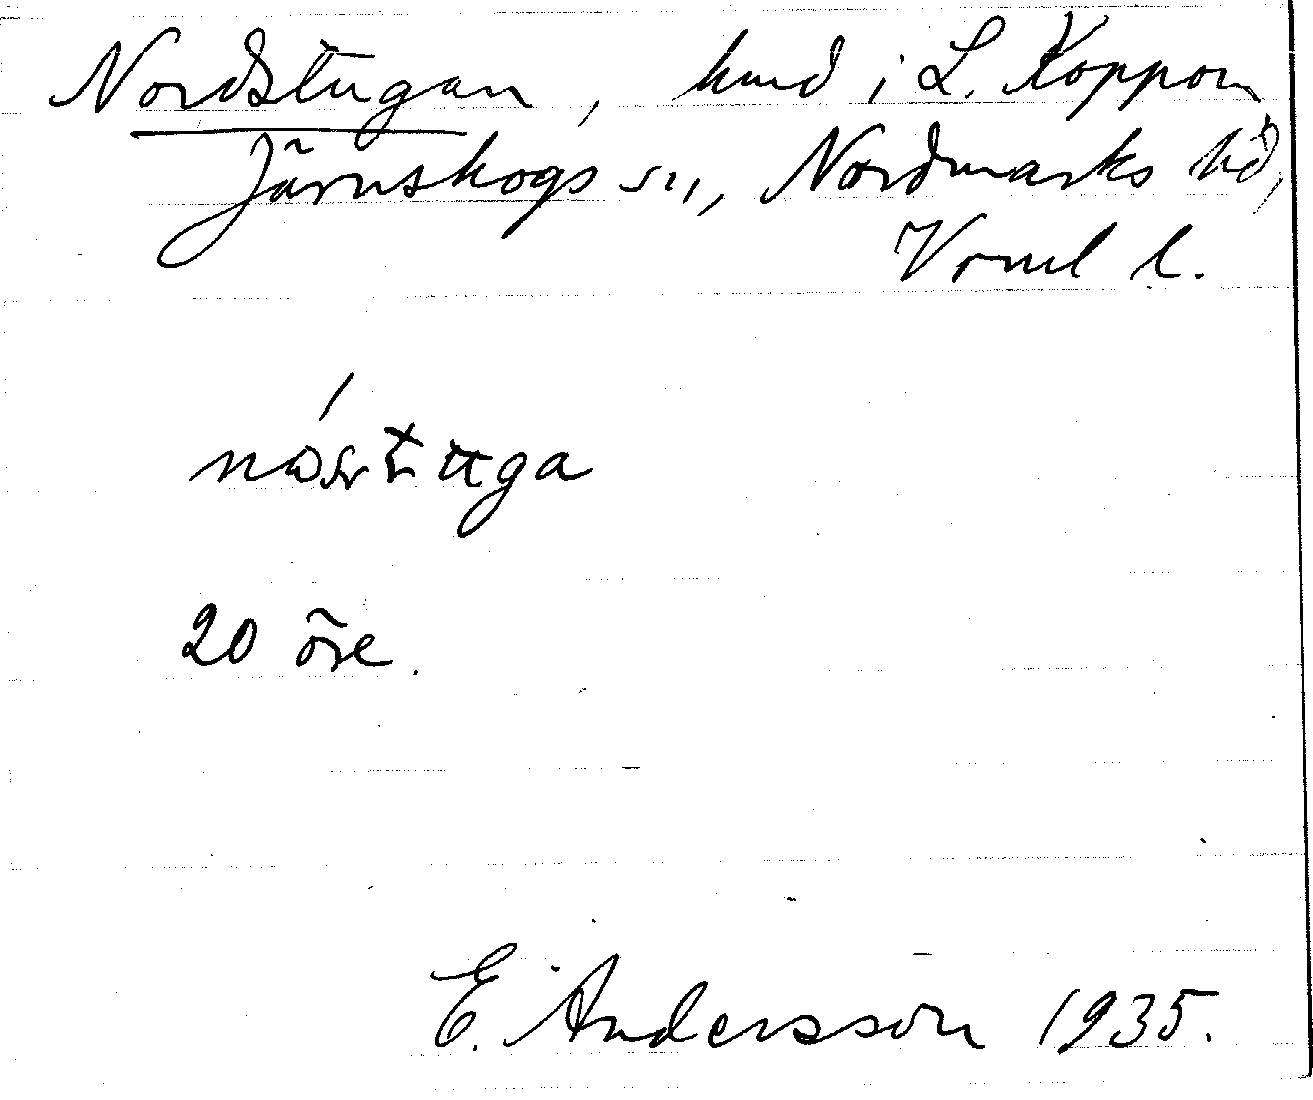 Nordstugan, hmd i L. Koppom
Järnskogs sn, Nordmarks hd,
Vrml l.
nástuga
20 öre.
E. Andersson 1935.